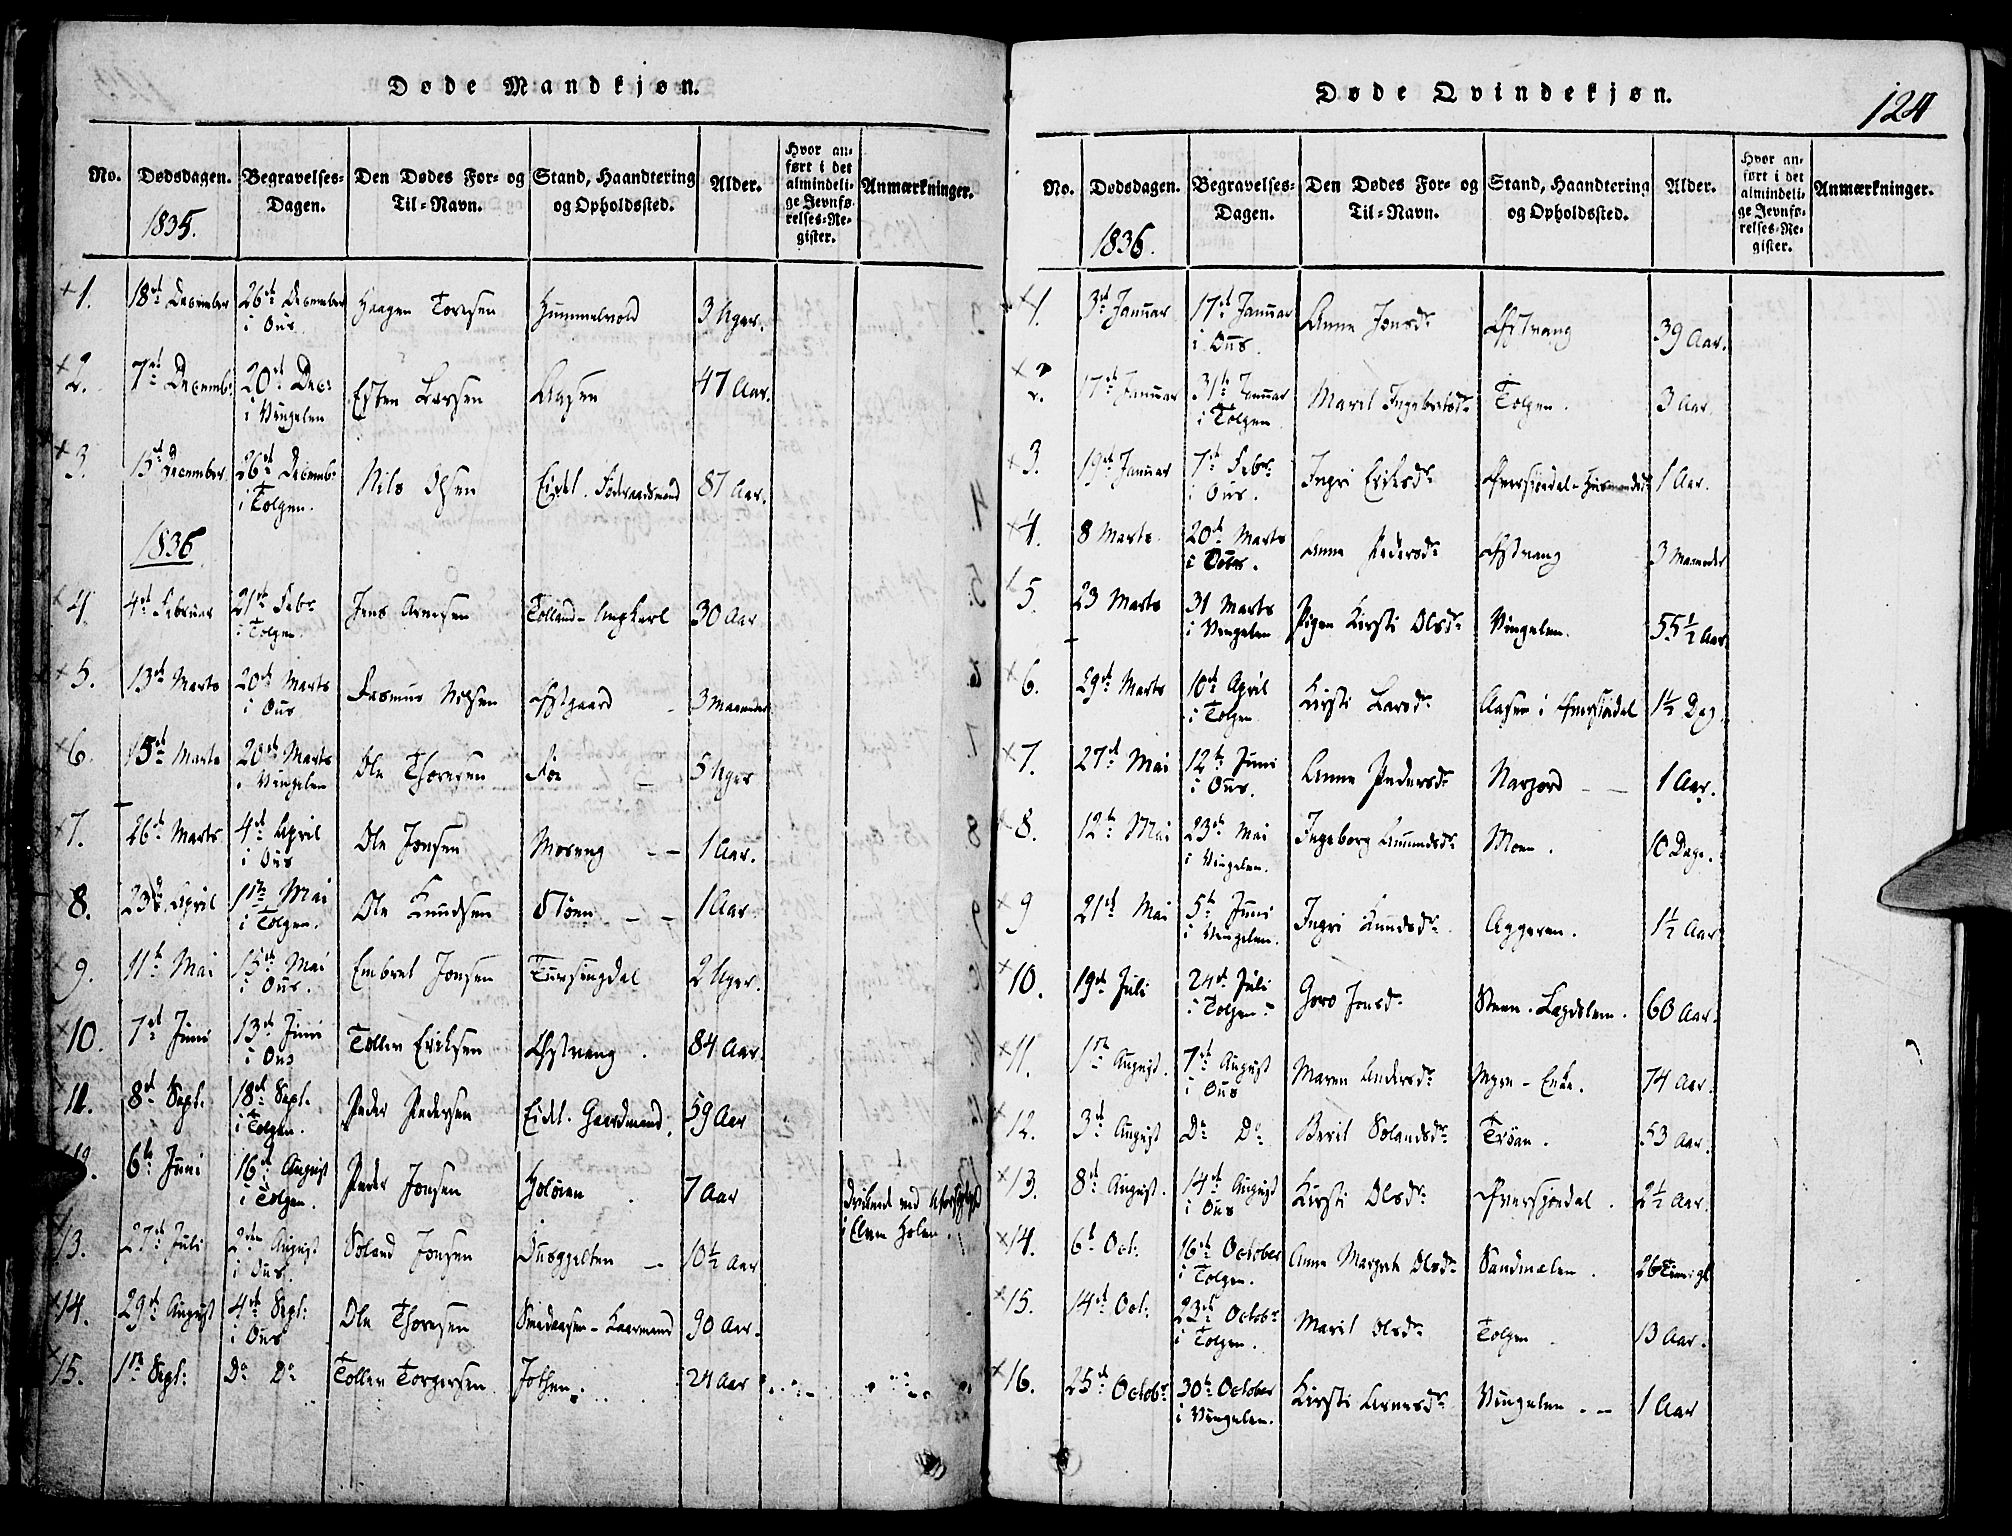 Døde Mandkjøn.
No. Dødsdagen. Begravelses-Dagen. Den Dødes For- og Til-Navn. Stand, Haandtering og Opholdssted. Alder. Hvor anført i det almindelige Jevnførelses-Register. Anmærkninger.
1835.
1. 18de December 26de December i Ous Haagen Toresen Hummelvold 3 Uger.
2. 7de Decemb: 20de Dec: i Vingelen Esten Larsen Aasen 47 Aar.
3. 15de December 26de Decemb: i Tolgen. Nils Olsen Eidet. Føderaadsmand 87 Aar.
1836.
4. 4de Februar 21de Febr i Tolgen. Jens Arnesen Tolland-Ungkarl 30 Aar
5. 13de Marts 20de Marts i Ous Rasmus Nilsen Øfstgaard 3 Maaneder
6. 15de Marts 20de Marts i Vingelen Ole Thoresen 5 Uger
7. 26de Marts 4de April i Ous Ole Jonsen Moseng 1 Aar.
8. 23de April 1ste Mai i Tolgen. Ole Knudsen 1 Aar
9. 11te Mai 15de Mai i Ous. Embret Jonsen Tursingdal 2 Uger.
10. 7de Juni 13de Juni i Ous Tollev Eriksen Øfstvang. 84 Aar.
11. 8de Sept: 18de Sept. i Tolgen. Peder Pedersen Eidet. Gaardmand. 59 Aar
12. 6te Juni 16de August i Tolgen. Peder Jonsen Holøien 7 Aar Druknede ved i Elven Holen.
13. 27de Juli 2den August i Ous. Foland Jonsen 10½ Aar
14. 29de August 4de Sept: i Ous Ole Thoresen Smedaasen-Kaarmand 90 Aar.
15. 1ste Sept: Do Do Tollev Torgersen Jothen. 24 Aar
Døde Qvindekjøn.
124
No. Dødsdagen. Begravelses-Dagen. Den Dødes For- og Til-Navn. Stand, Haandtering og Opholdssted. Alder. Hvor anført i det almindelige Jevnførelses-Register. Anmærkninger.
1836.
1. 3de Januar 17de Januar i Ous. Anne Jonsdr Øfstvang 39 Aar.
2. 17de Januar 31te Januar i Tolgen Marit Ingebrtsdr Tolgen. 3 Aar.
3. 19de Januar 7de Febr: i Ous. Ingri Eriksdr Øversiødal-Husmandsdr 1 Aar.
4. 8 Marts 20de Marts i Anne Pedersdr Øfstvang 3 Maaneder
5. 23 Marts 31 Marts i Vingelen Pigen Kirsti Olsdr Vingelen. 55½ Aar
6. 29de Marts 10de April i Tolgen Kirsti Larsdr Aasen i Øversiødal 1½ Dag.
7. 27de Mai 12te Juni i Ous. Anne Pedersdr Narjord 1 Aar.
8. 12te Mai 23de Mai i Vingelen. Ingeborg Amundsdr Moen. 10 Dage.
9 21de Mai 5te Juni i Vingelen. Ingri Knudsdr Aggeren. 1½ Aar
10. 19de Juli 24de Juli i Tolgen Goro Jonsdr Steen-Lægdslem. 60 Aar.
11. 1ste August. 7de August i Ous Maren Andersdr Myen-Enke. 74 Aar.
12. 3de August Do Do Berit Folandsdr Trøan. 53 Aar.
13. 8de August. 14de August i Ous Kirsti Olsdr Øversjødal. 2½ Aar.
14. 6te Oct: 16te October i Tolgen. Anne Margrete Olsdr Sandmælen. 26 Timer gl
15. 14de Oct: 23de Octobr i Tolgen. Marit Olsdr Tolgen 13 Aar.
16. 25de Octobr 30te October i Vingelen. Kirsti Arnesdr Vingelen. 1 Aar